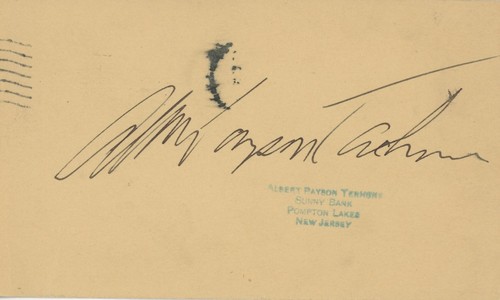 Albert Payson Terhune
ALBERT PAYSON TERHUNE
SUNNY BANK
POMPTON LAKES
NEW JERSEY